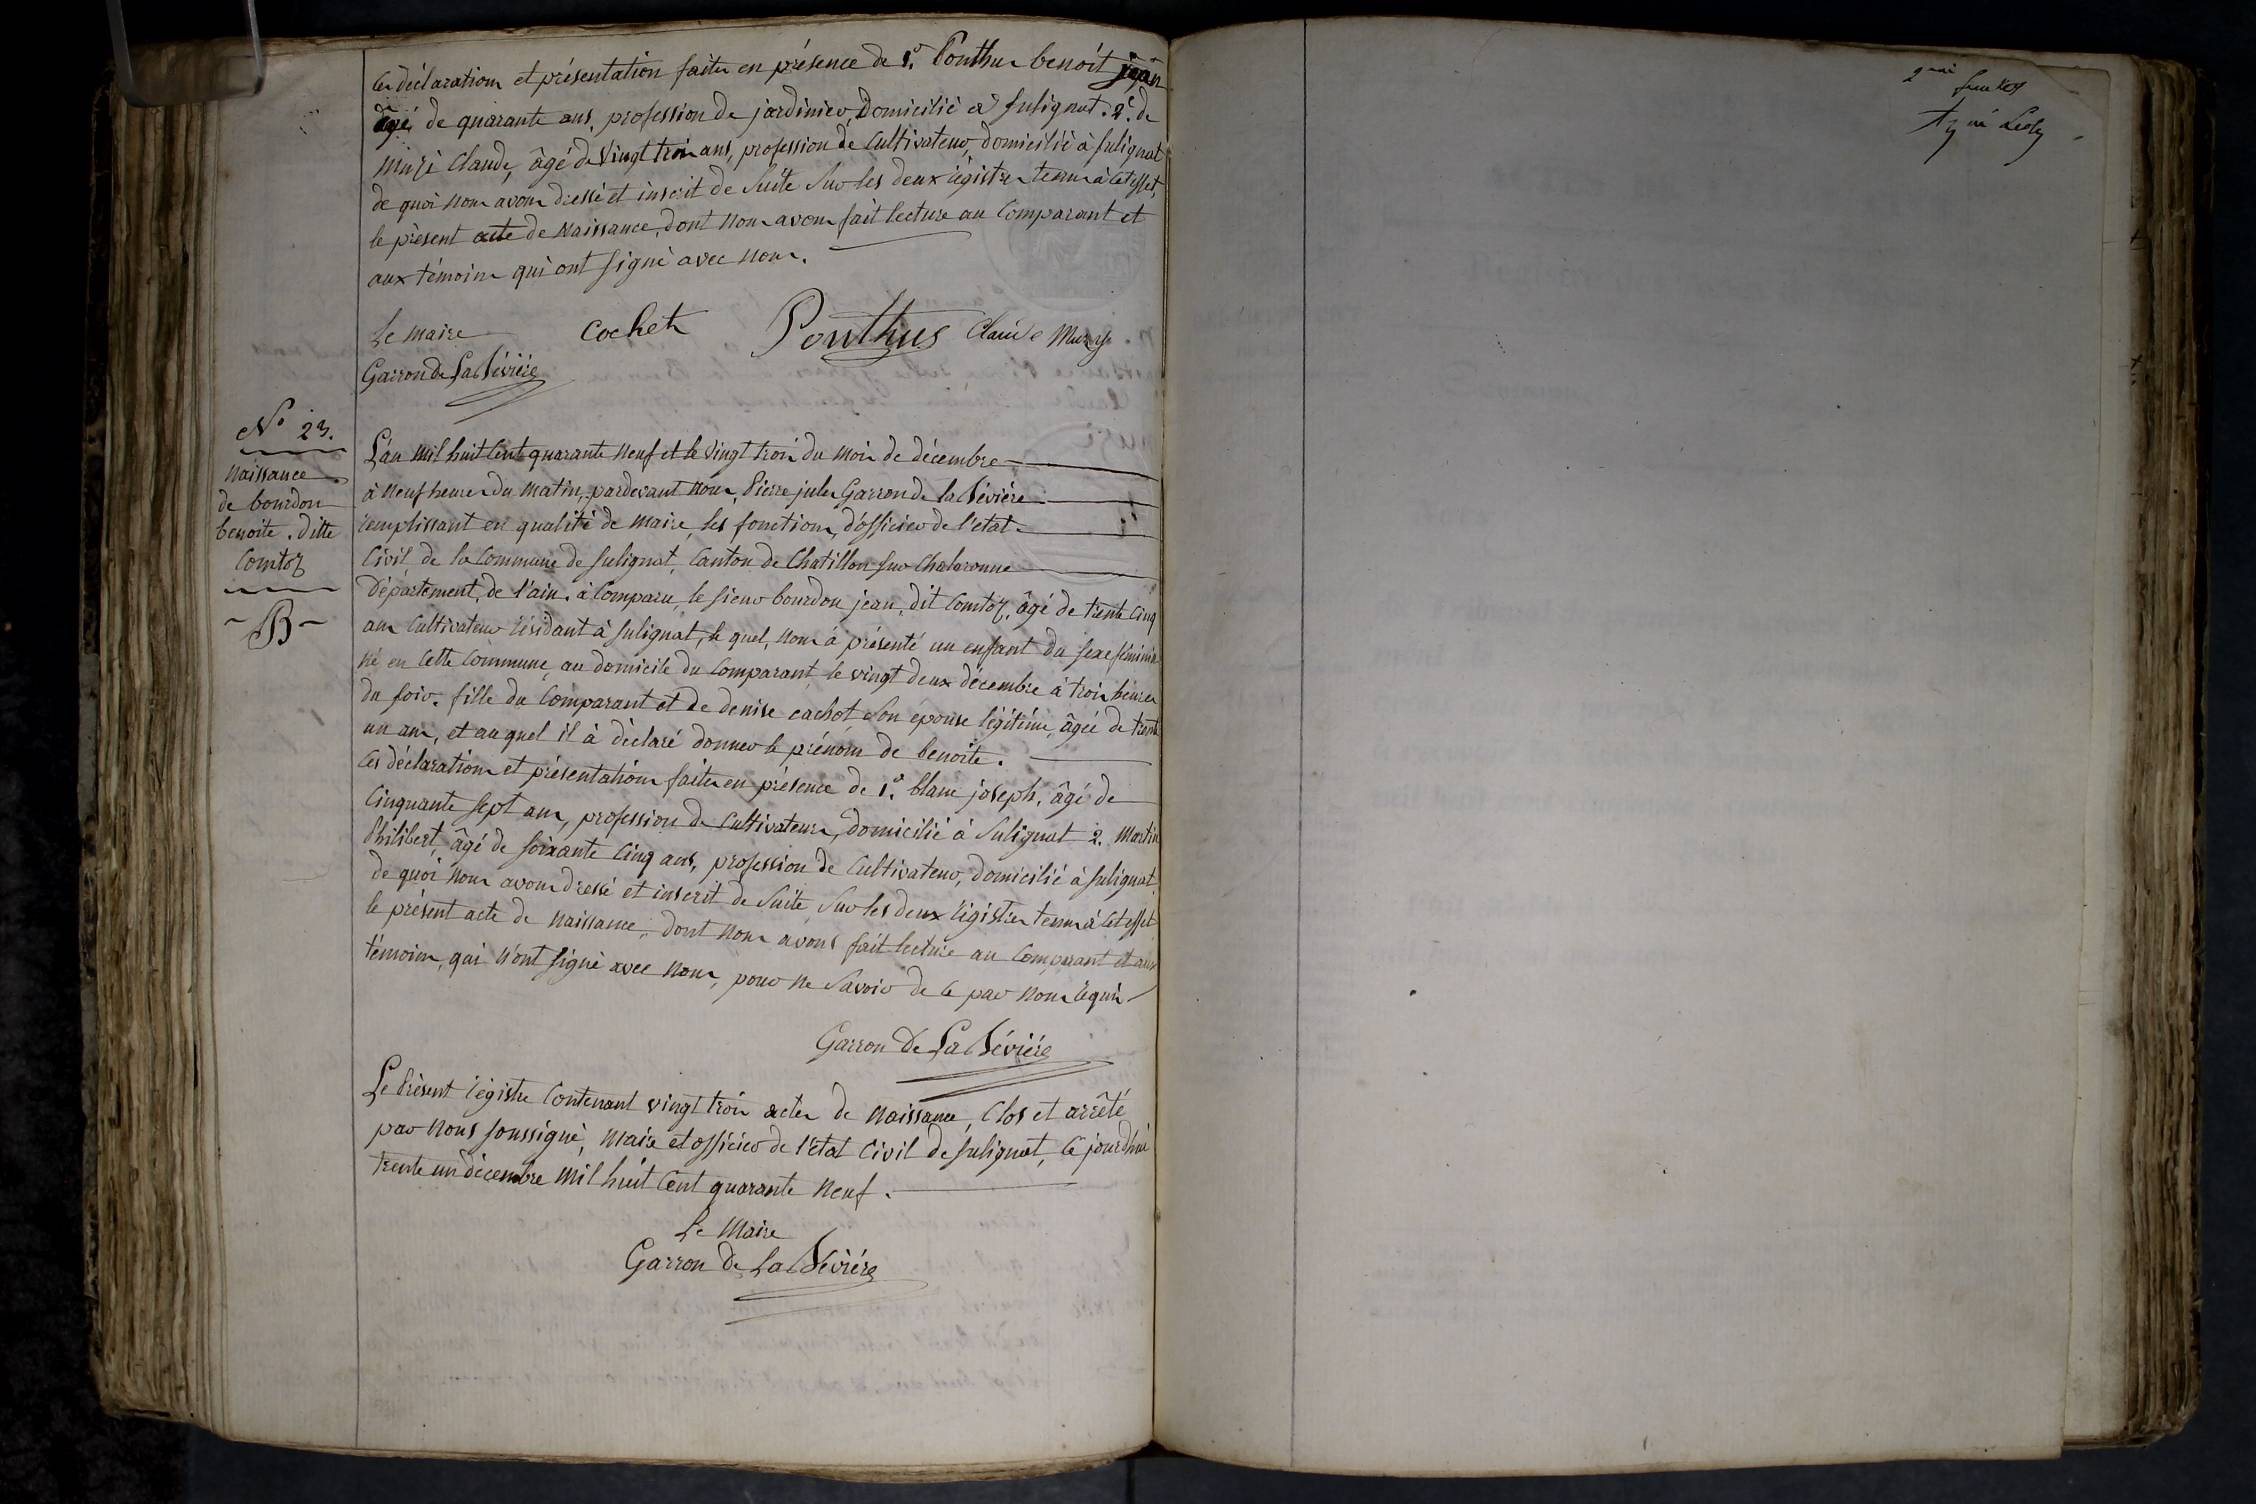 Ces déclaration et présentation faites en présence de 1.° Ponthus benoit jean
âgé de quarante ans, profession de jardinier, Domicilié à Sulignat. 2.° de
Muzi Claude, âgé de Vingt trois ans, profession de Cultivateur, domicilié à Sulignat
de quoi nous avons dressé et inscrit de Suite Sur les deux régistres tenus à cet effet,
le présent acte de Naissance, dont nous avons fait lecture au Comparant et
aux témoins qui ont signé avec nous.
Le maire Cochet Ponthus Claude Muzy
Garron de La Bévière
N° 23.
Naissance
de bourdon
benoite. ditte
Comtoz
B
L'an mil huit Cent quarante neuf et le Vingt trois du mois de décembre
à neuf heures du matin, pardevant nous, Pierre jules Garron de la Bévière
remplissant en qualité de maire, les fonctions d'officier de l'état
Civil de la Commune de Sulignat, Canton de Chatillon Sur Chalaronne
Département, de l'ain. à Comparu, le Sieur bourdon jean, dit Comtoz, âgé de trente cinq
ans Cultivateur résidant à Sulignat, le quel, nous à présenté un enfant du sexe féminin
né, en Cette Commune, au domicile du Comparant, le vingt deux décembre à trois heures
du soir. fille du Comparant et de denise cachot son épouse légitime, âgée de trente
un ans, et auquel il à déclaré donner le prénom de benoite.
Ces déclaration et présentation faites en présence de 1.° blanc joseph, âgé de
Cinquante sept ans, profession de Cultivateur, domicilié à Sulignat 2. Martin
Philibert, âgé de soixante Cinq ans, profession de Cultivateur, domicilié à Sulignat
de quoi nous avons dressé et inscrit de Suite, Sur les deux régistres tenus à cet effet
le présent acte de Naissance, dont nous avons fait lecture au Comparant et aux
témoins, qui n'ont signé avec nous, pour ne Savoir de ce par nous requis
Garron de La Bévière
Le Présent régistre Contenant vingt trois actes de Naissance, Clos et arrêté
par nous soussigné, Maire et officier de l'état Civil de Sulignat, Ce jourdhui
trente un décembre mil huit Cent quarante Neuf.
Le Maire
Garron de La Bévière